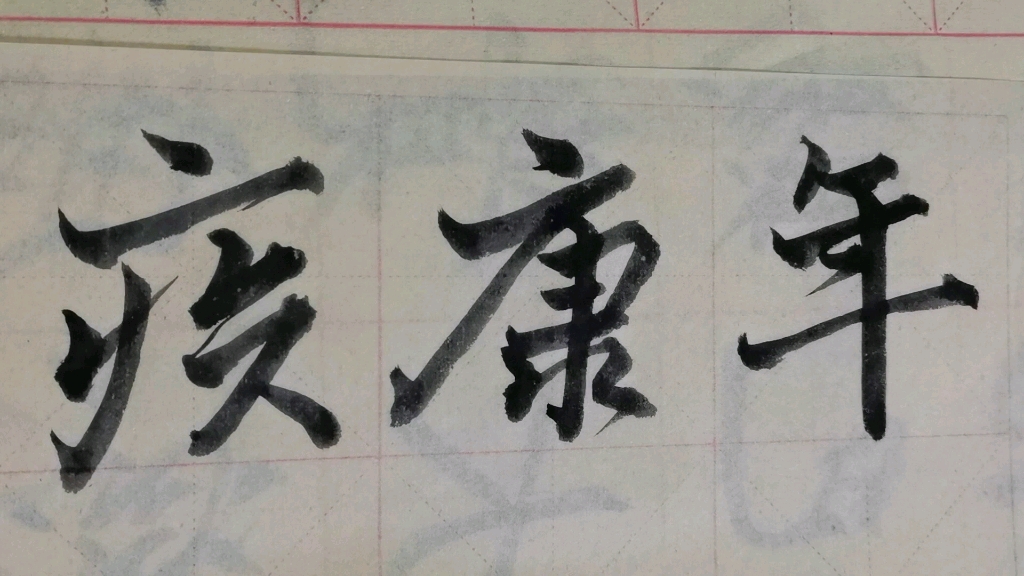 疾康年